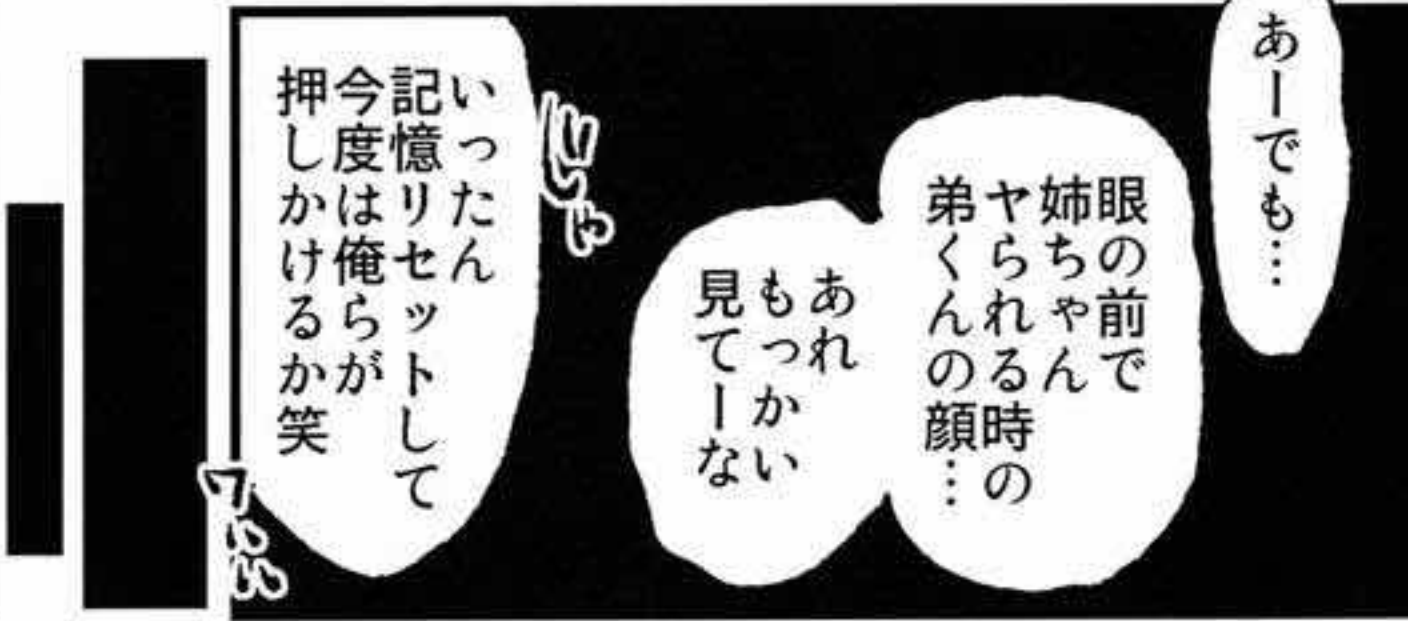 あーでも…
眼の前で
姉ちゃん
ヤられる時の
弟くんの顔…
あれ
もっかい
見てーな
いったん
記憶リセットして
今度は俺らが
押しかけるか笑